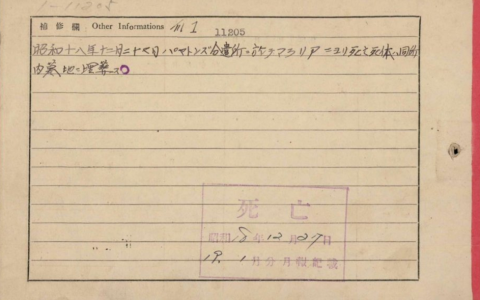 1-11205
補修欄 Other Informations M 1
11205
昭和十八年十二月二十七日 パヤトンズ分遣所ニ於テマラリアニヨリ死亡死体ハ同所
内墓地ニ埋葬ス
死亡
昭和18年12月27日
19.1月分月報記載